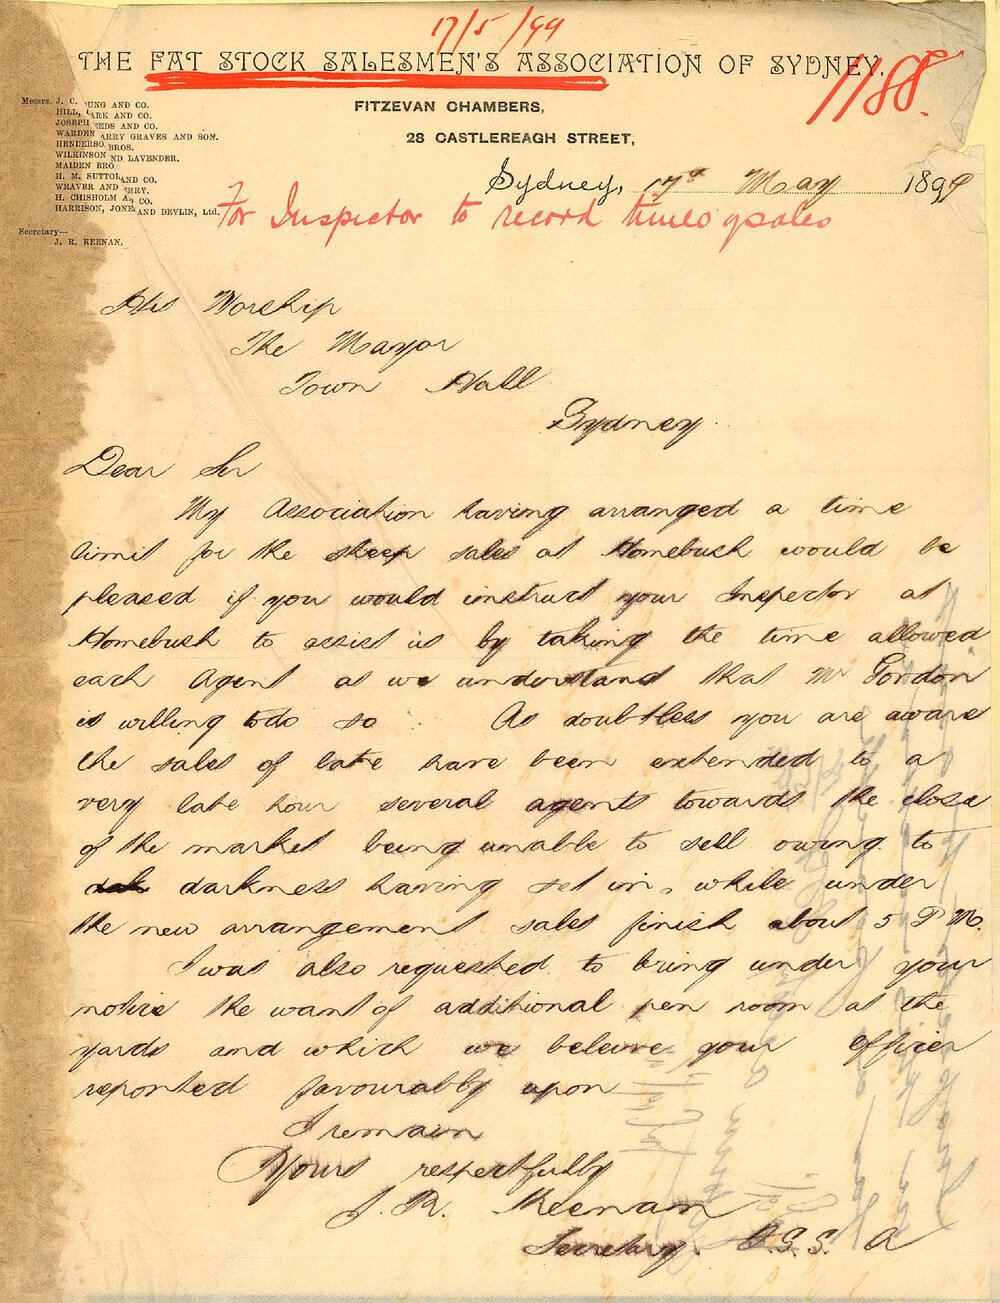 17/5/99
THE FAT STOCK SALESMEN'S ASSOCIATION OF SYDNEY.
1188
FITZEVAN CHAMBERS,
28 CASTLEREAGH STREET,
Messrs. J. C. UNG AND CO.
HILL, ARK AND CO.
JOSEPH EDS AND CO.
WARDEN ARRY GRAVES AND SON.
HENDERSO BROS.
WILKINSON ND LAVENDER.
MAIDEN BRO
H. M. SUTTO AND CO.
WEAVER AND RRY.
H. CHISHOLM A CO.
HARRISON, JONE AND DEVLIN, Ltd.
Secretary—
J. R. KEENAN.
Sydney, 17th May 1899
For Inspector to record times of sales
His Worship
The Mayor
Town Hall
Sydney.
Dear Sir
My Association having arranged a time
limit for the sheep sales at Homebush would be
pleased if you would instruct your Inspector at
Homebush to assist us by taking the time allowed
each Agent as we understand that Mr Gordon
is willing to do so. As doubtless you are aware
the sales of late have been extended to a
very late hour several agents towards the close
of the market being unable to sell owing to
darkness having set in, while under
the new arrangement sales finish about 5 P.M.
I was also requested to bring under your
notice the want of additional pen room at the
yards and which we beleive your Officer
reported favourably upon
I remain
Yours respectfully
J. R. Keenan
Secretary F.S.S. A